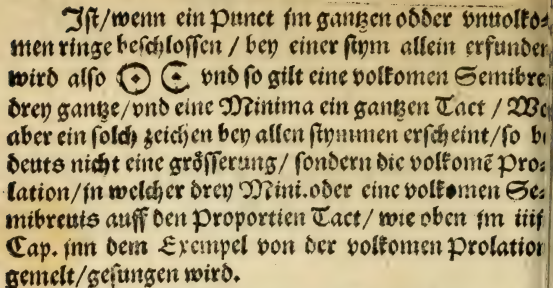 Ist/wenn ein Punct im gantzen odder vnuolko⸗
men ringe beschlossen / bey einer stym allein erfunden
wird also ʘ vnd so gilt eine volkomen Semibre
drey gantze/vnd eine Minima ein gantzen Tact /
aber ein solch zeichen bey allen stymmen erscheint/so
deuts nicht eine grösserung/ sondern die volkomē Pro⸗
lation/in welcher drey Mini.oder eine volkomen Se⸗
mibreuis auff den Proportien Tact/ wie oben im iiij
Cap. inn dem Exempel von der volkomen Prolation
gemelt/gesungen wird.